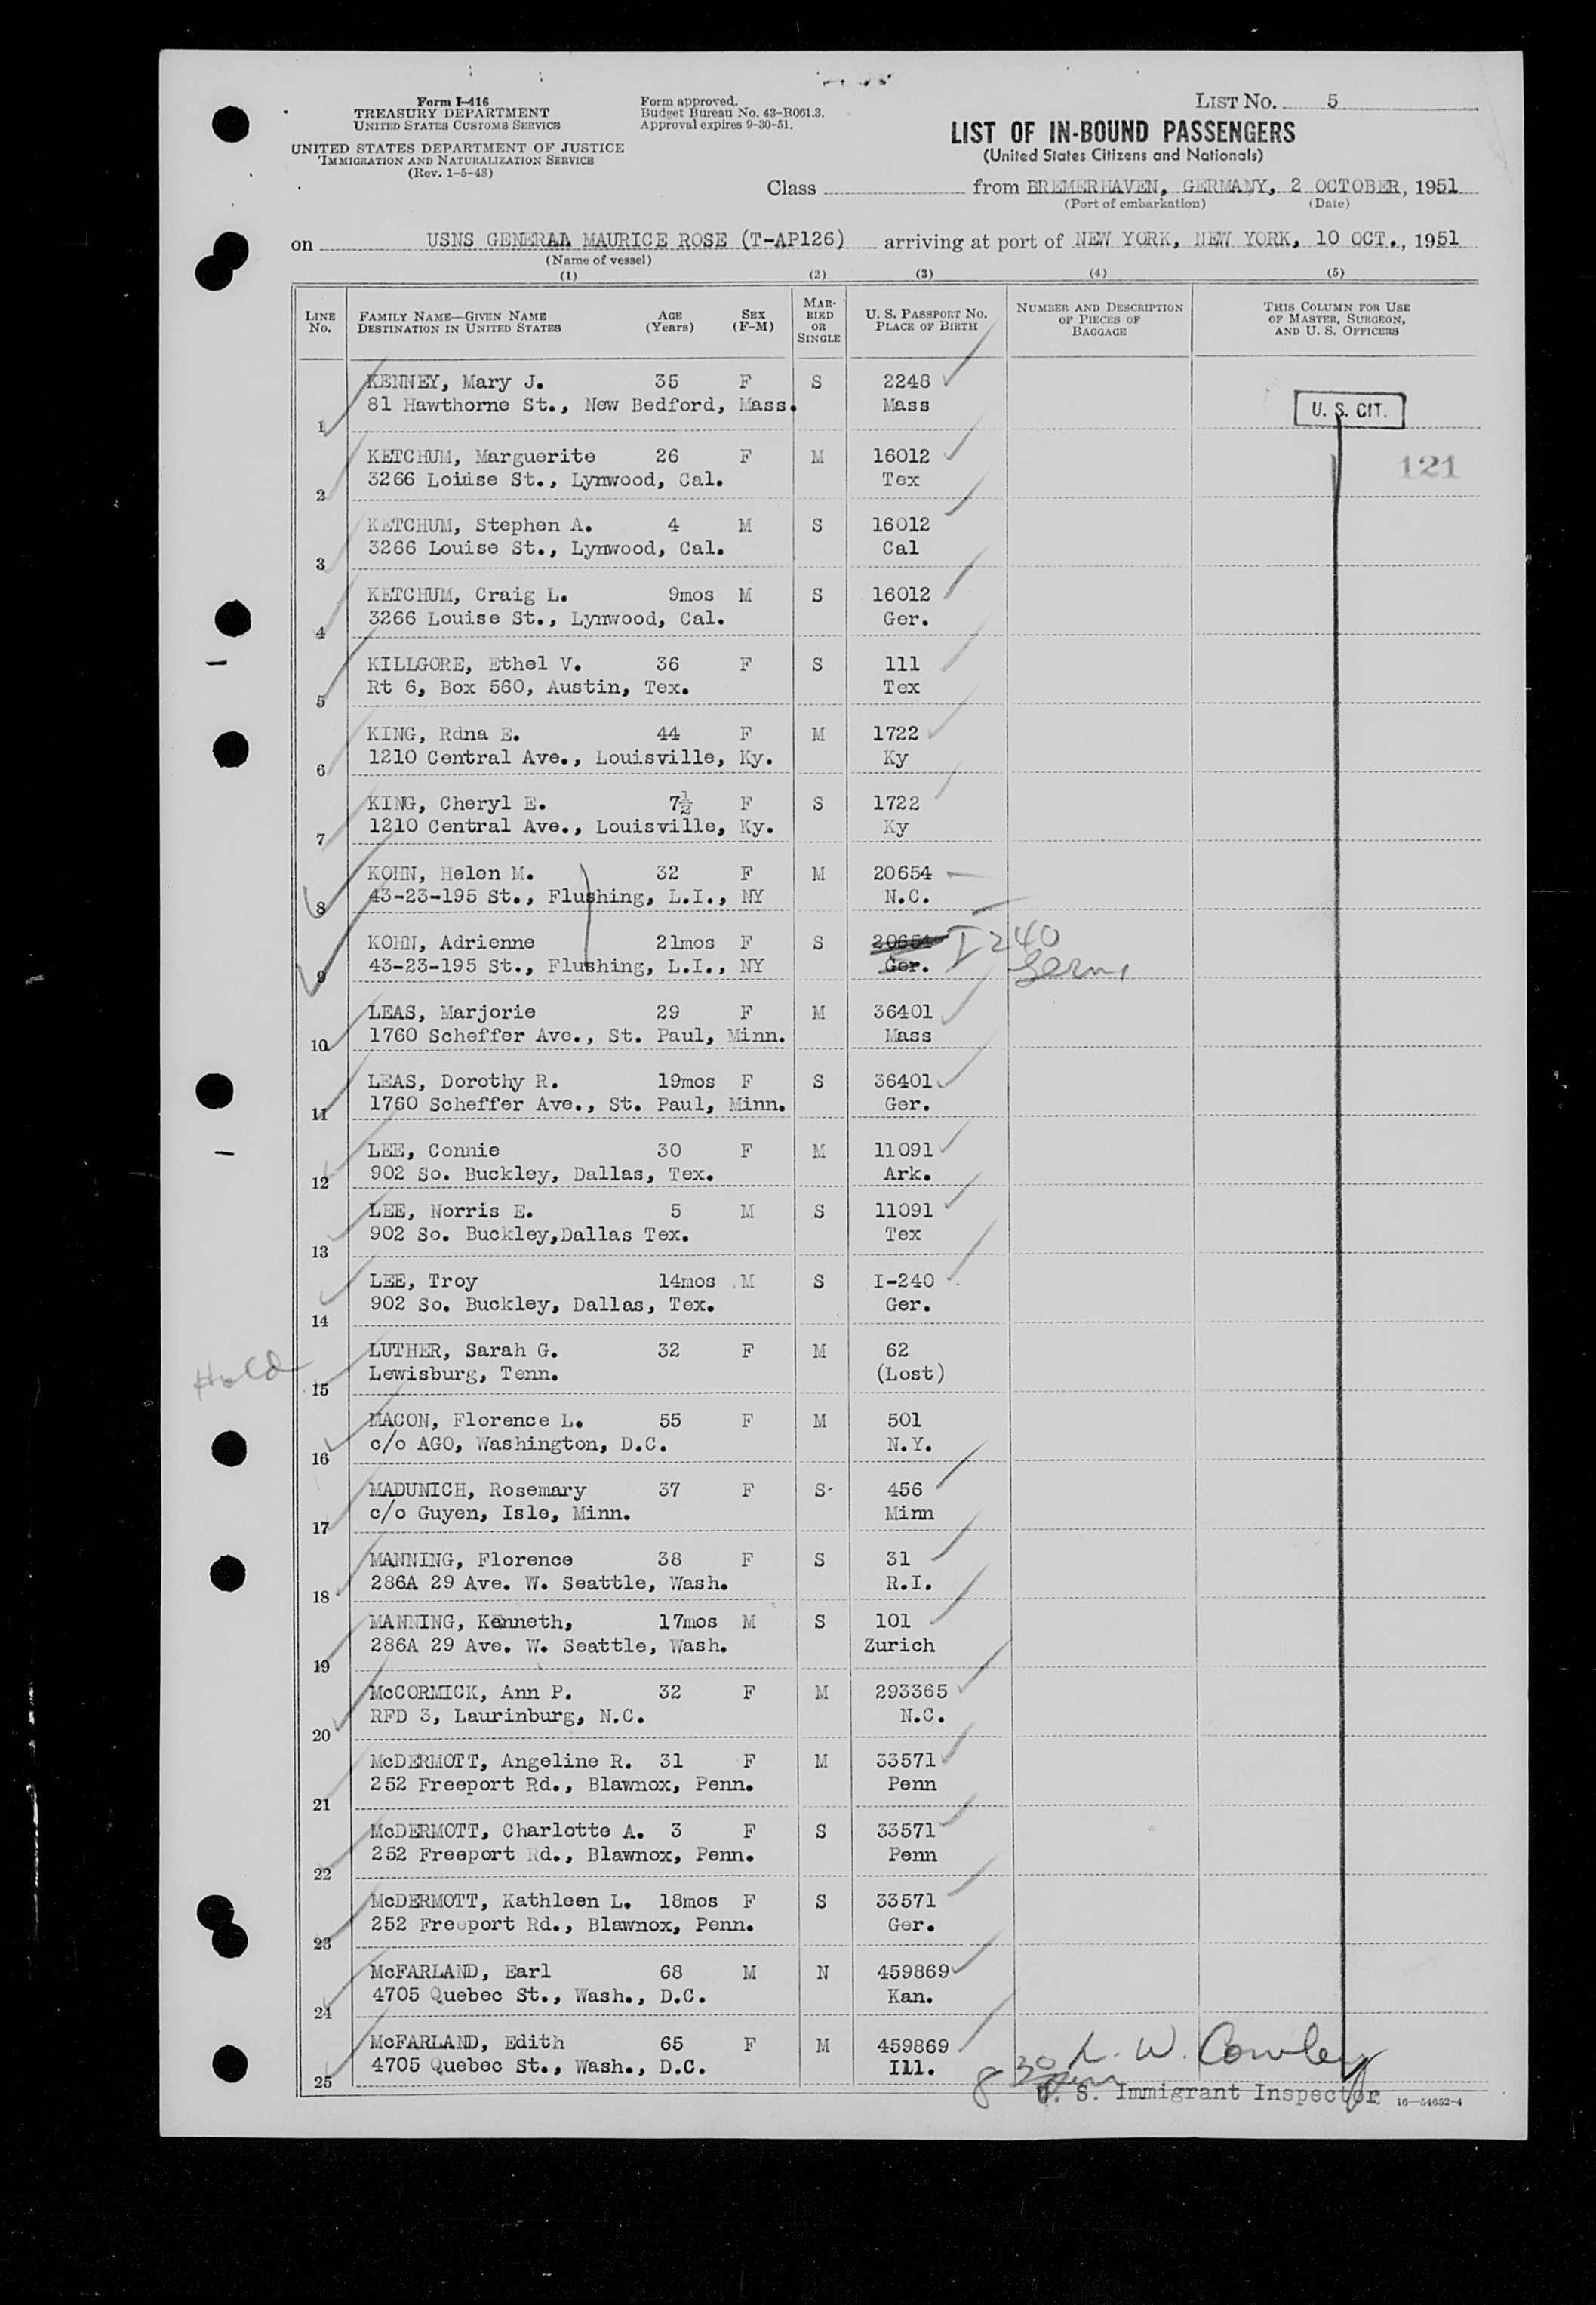 Form I-416
TREASURY DEPARTMENT
UNITED STATES CUSTOMS SERVICE
UNITED STATES DEPARTMENT OF JUSTICE
IMMIGRATION AND NATURALIZATION SERVICE
(Rev. 1-5-48)
Form approved.
Budget Bureau No. 43-R061.3.
Approval expires 9-30-51.
LIST NO. 5
LIST OF IN-BOUND PASSENGERS
(United States Citizens and Nationals)
Class from BREMERHAVEN, GERMANY, 2 OCTOBER, 1951
(Port of embarkation) (Date)
on USNS GENERAL MAURICE ROSE (T-AP126) arriving at port of NEW YORK, NEW YORK, 10 OCT., 1951
(Name of vessel)
(1) (2) (3) (4) (5)
LINE NO. FAMILY NAME—GIVEN NAME DESTINATION IN UNITED STATES AGE (Years) SEX (F-M) MARRIED OR SINGLE U. S. PASSPORT NO. PLACE OF BIRTH NUMBER AND DESCRIPTION OF PIECES OF BAGGAGE THIS COLUMN FOR USE OF MASTER, SURGEON, AND U. S. OFFICERS
KENNEY, Mary J. 35 F S 2248
1 81 Hawthorne St., New Bedford, Mass. Mass U. S. CIT.
KETCHUM, Marguerite 26 F M 16012 121
2 3266 Loiuise St., Lynwood, Cal. Tex
KETCHUM, Stephen A. 4 M S 16012
3 3266 Louise St., Lynwood, Cal. Cal
KETCHUM, Craig L. 9mos M S 16012
4 3266 Louise St., Lynwood, Cal. Ger.
KILLGORE, Ethel V. 36 F S 111
5 Rt 6, Box 560, Austin, Tex. Tex
KING, Rdna E. 44 F M 1722
6 1210 Central Ave., Louisville, Ky. Ky
KING, Cheryl E. 7½ F S 1722
7 1210 Central Ave., Louisville, Ky. Ky
KOHN, Helen M. 32 F M 20654
8 43-23-195 St., Flushing, L.I., NY N.C.
KOHN, Adrienne 21mos F S 20654 I 240
9 43-23-195 St., Flushing, L.I., NY Ger. Germ,
LEAS, Marjorie 29 F M 36401
10 1760 Scheffer Ave., St. Paul, Minn. Mass
LEAS, Dorothy R. 19mos F S 36401
11 1760 Scheffer Ave., St. Paul, Minn. Ger.
LEE, Connie 30 F M 11091
12 902 So. Buckley, Dallas, Tex. Ark.
LEE, Norris E. 5 M S 11091
13 902 So. Buckley,Dallas Tex. Tex
LEE, Troy 14mos M S I-240
14 902 So. Buckley, Dallas, Tex. Ger.
LUTHER, Sarah G. 32 F M 62
Hold 15 Lewisburg, Tenn. (Lost)
MACON, Florence L. 55 F M 501
16 c/o AGO, Washington, D.C. N.Y.
MADUNICH, Rosemary 37 F S 456
17 c/o Guyen, Isle, Minn. Minn
MANNING, Florence 38 F S 31
18 286A 29 Ave. W. Seattle, Wash. R.I.
MANNING, Kenneth, 17mos M S 101
19 286A 29 Ave. W. Seattle, Wash. Zurich
McCORMICK, Ann P. 32 F M 293365
20 RFD 3, Laurinburg, N.C. N.C.
McDERMOTT, Angeline R. 31 F M 33571
21 252 Freeport Rd., Blawnox, Penn. Penn
McDERMOTT, Charlotte A. 3 F S 33571
22 252 Freeport Rd., Blawnox, Penn. Penn
McDERMOTT, Kathleen L. 18mos F S 33571
23 252 Freeport Rd., Blawnox, Penn. Ger.
McFARLAND, Earl 68 M N 459869
24 4705 Quebec St., Wash., D.C. Kan.
McFARLAND, Edith 65 F M 459869
25 4705 Quebec St., Wash., D.C. Ill.
8 30 L. W. Cowley
U. S. Immigrant Inspector 16—54652-4